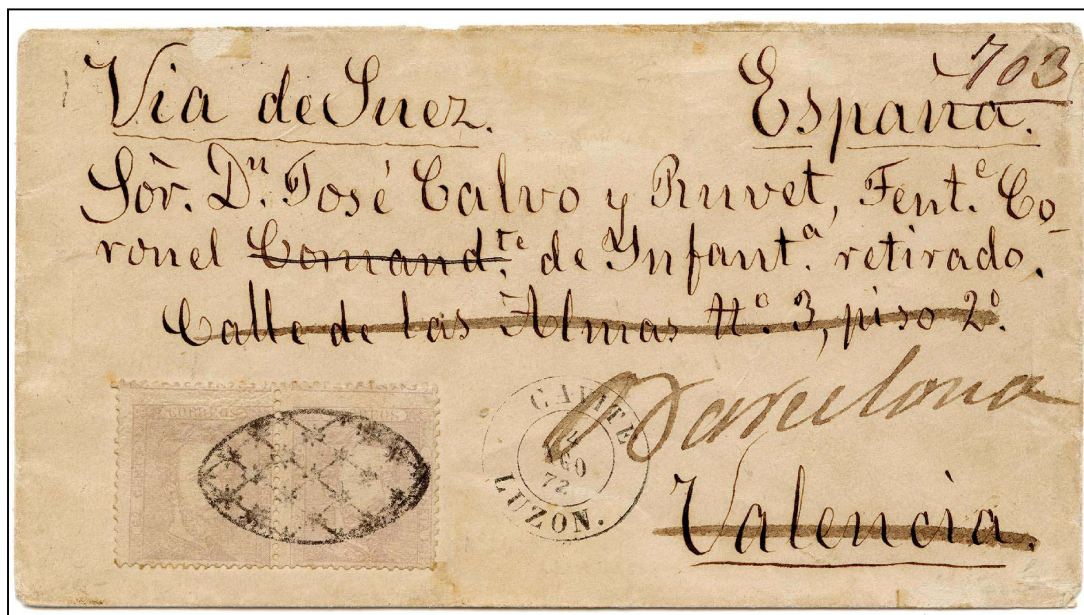 703
Via de Suez. España.
Sōr. Dⁿ. José Calvo y Ruvet, Tent.ᵉ Co-
ronel Comand.ᵗᵉ de Ynfant.ᵃ retirado.
Calle de las Almas N.º 3, piso 2.º
Barcelona
Valencia.
CAVITE
72
LUZON.